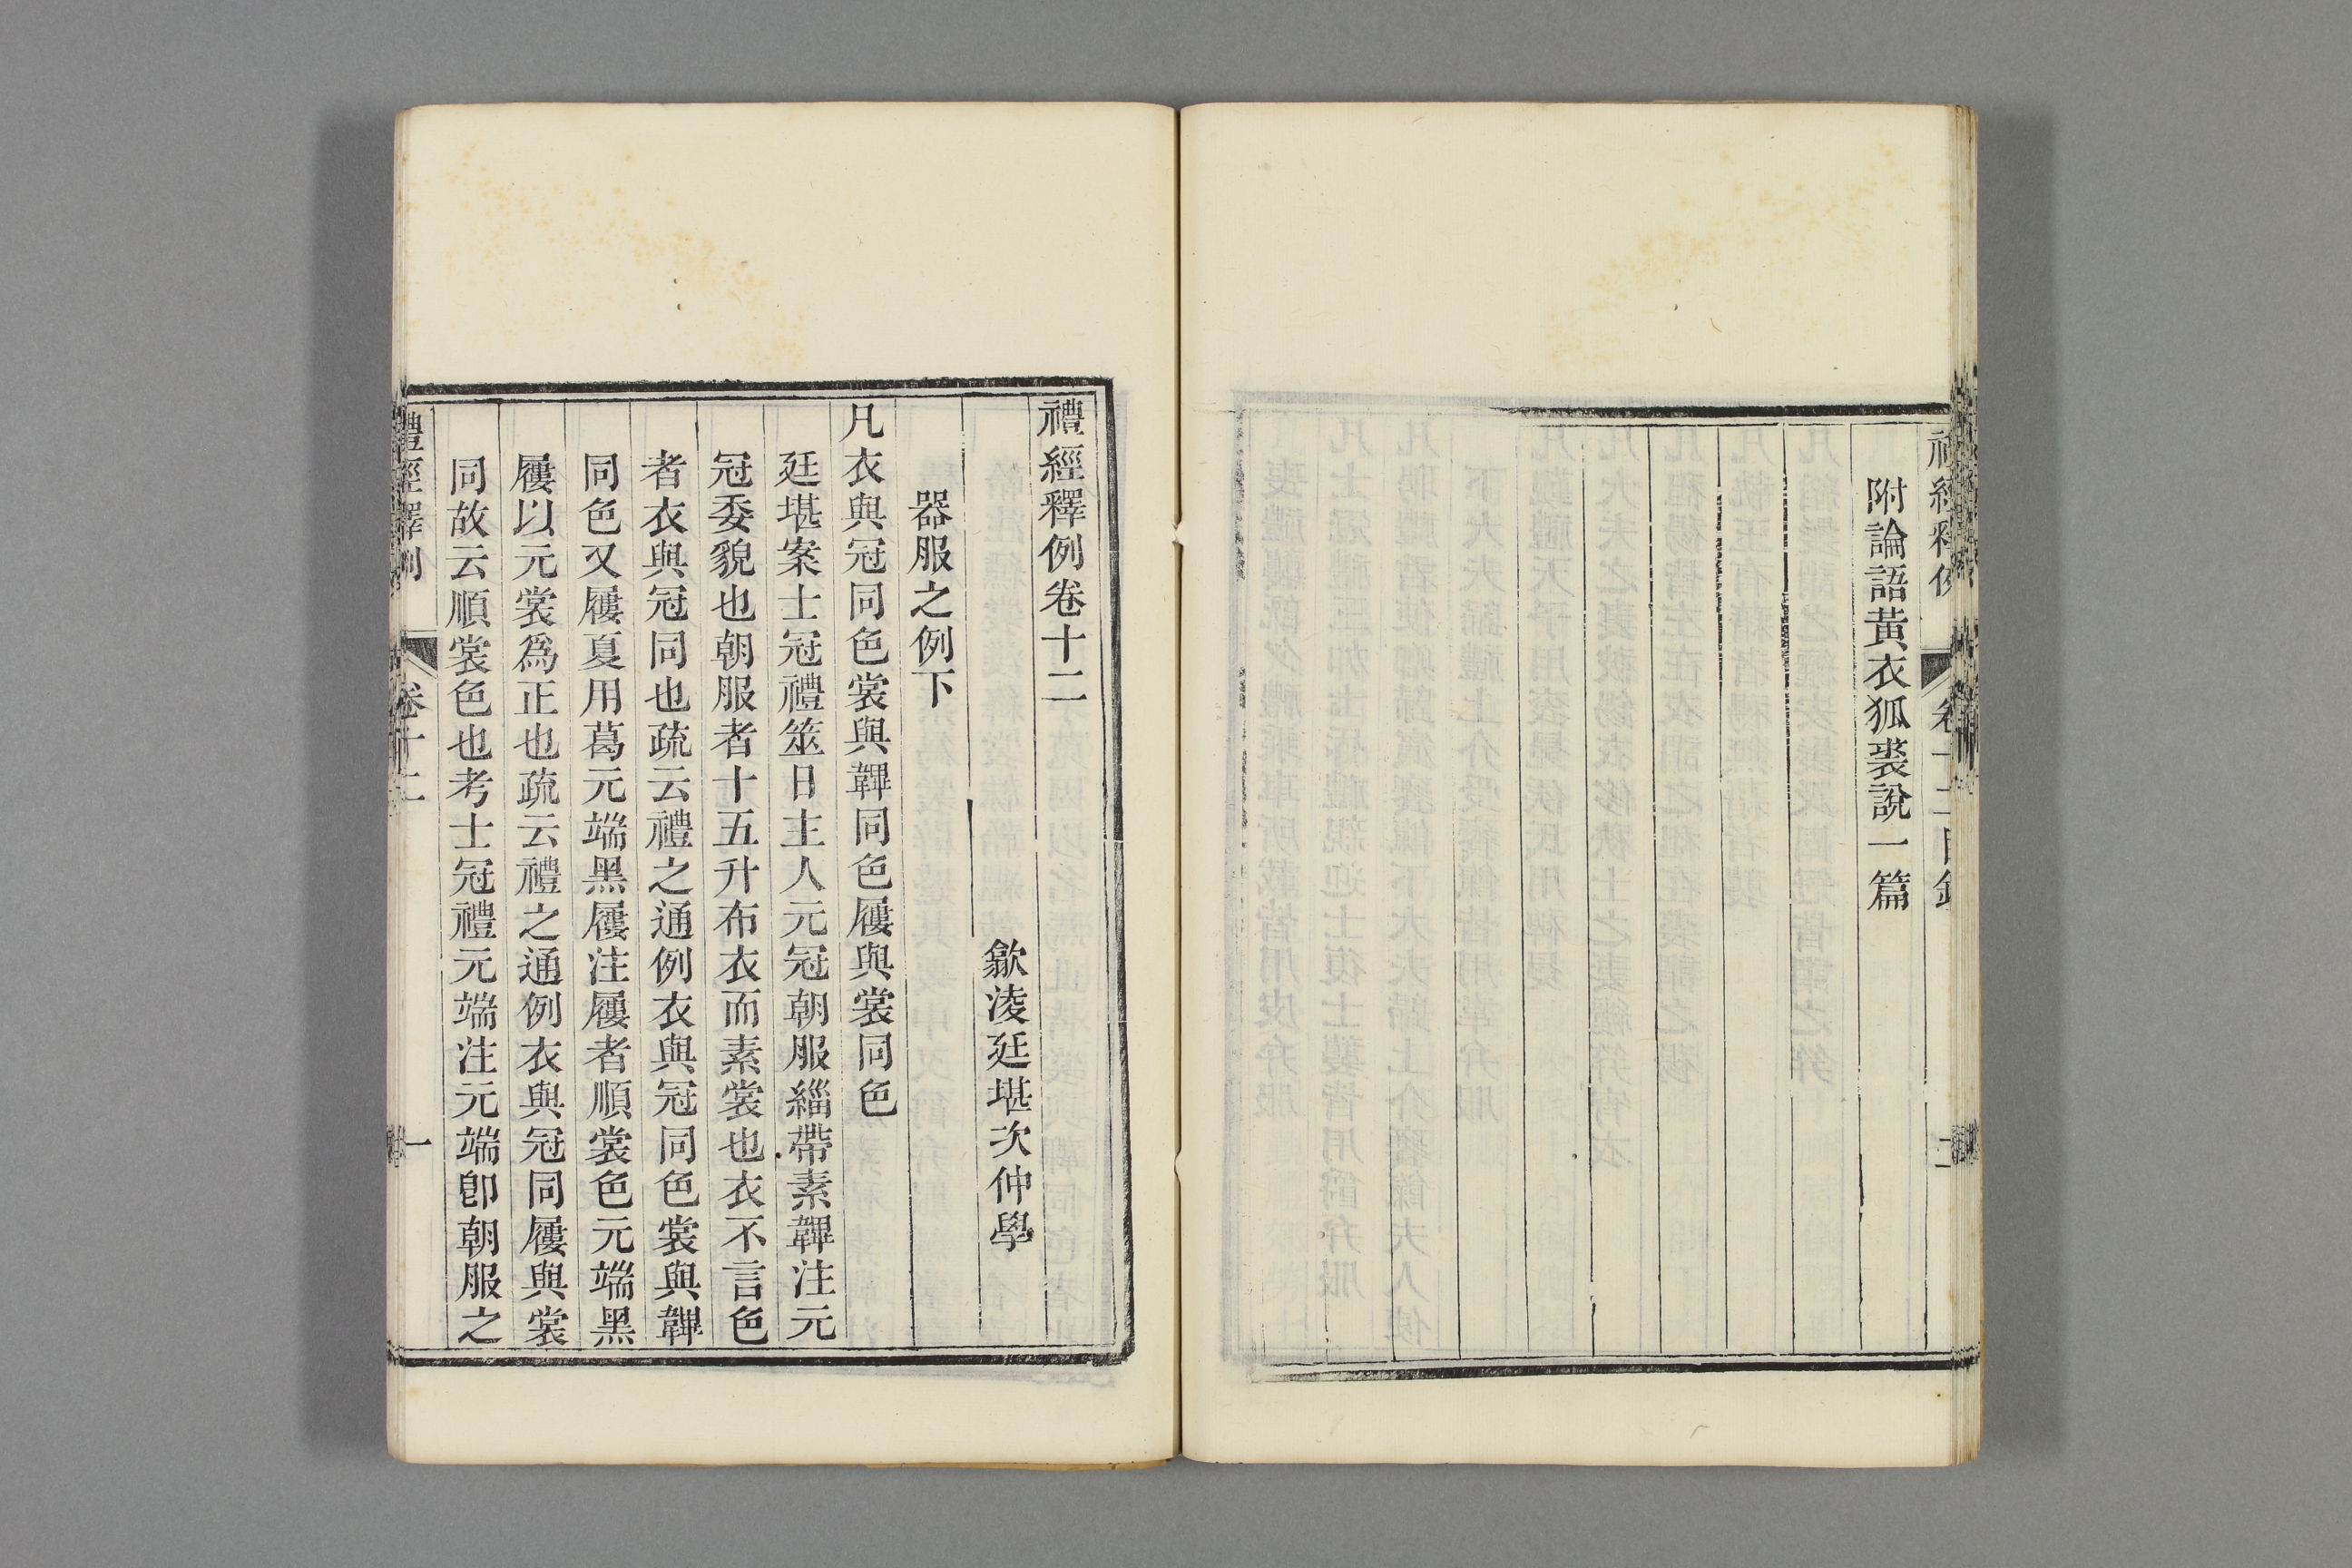 附論語黃衣狐裘說一篇
禮經釋例卷十二
歙淩廷堪次仲學
器服之例下
凡衣與冠同色裳與韠同色屨與裳同色
廷堪案士冠禮筮日主人元冠朝服緇帶素韠注元
冠委貌也朝服者十五升布衣而素裳也衣不言色
者衣與冠同也疏云禮之通例衣與冠同色裳與韠
同色又屨夏用葛元端黑屨注屨者順裳色元端黑
屨以元裳為正也疏云禮之通例衣與冠同屨與裳
同故云順裳色也考士冠禮元端注元端卽朝服之
禮經釋例 卷十二 一